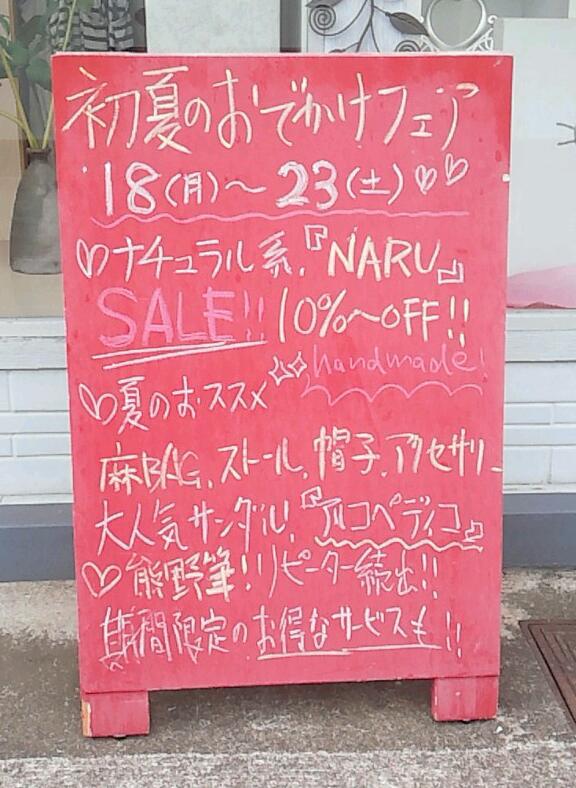 初夏のおでかけフェア
18(月)〜23(土)♡♡
♡ナチュラル系.『NARU』
SALE!! 10%〜OFF!!
handmade!
♡夏のおススメ
麻BAG、ストール、帽子、アクセサリー
大人気サンダル!『アルコペディコ』
♡熊野筆!リピーター続出!!
期間限定のお得なサービスも!!